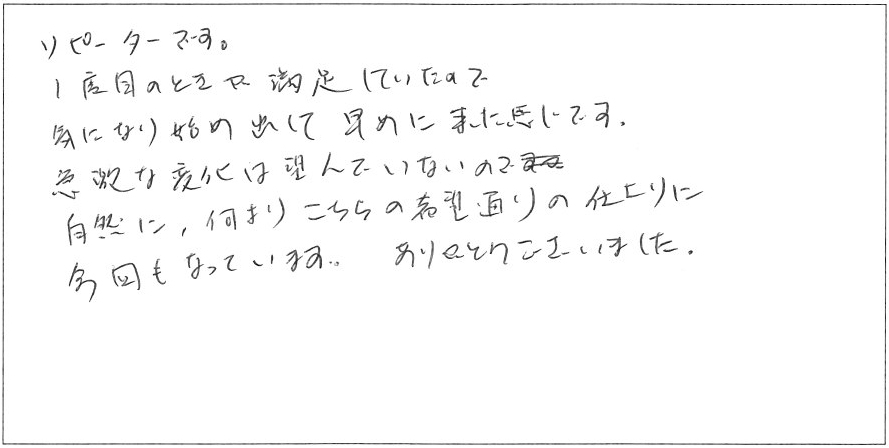 リピーターです。
1度目のときも満足していたので
気になり始め出して早めに来た感じです.
急激な変化は望んでいないので
自然に, 何よりこちらの希望通りの仕上りに
今回もなっています。 ありがとうございました.